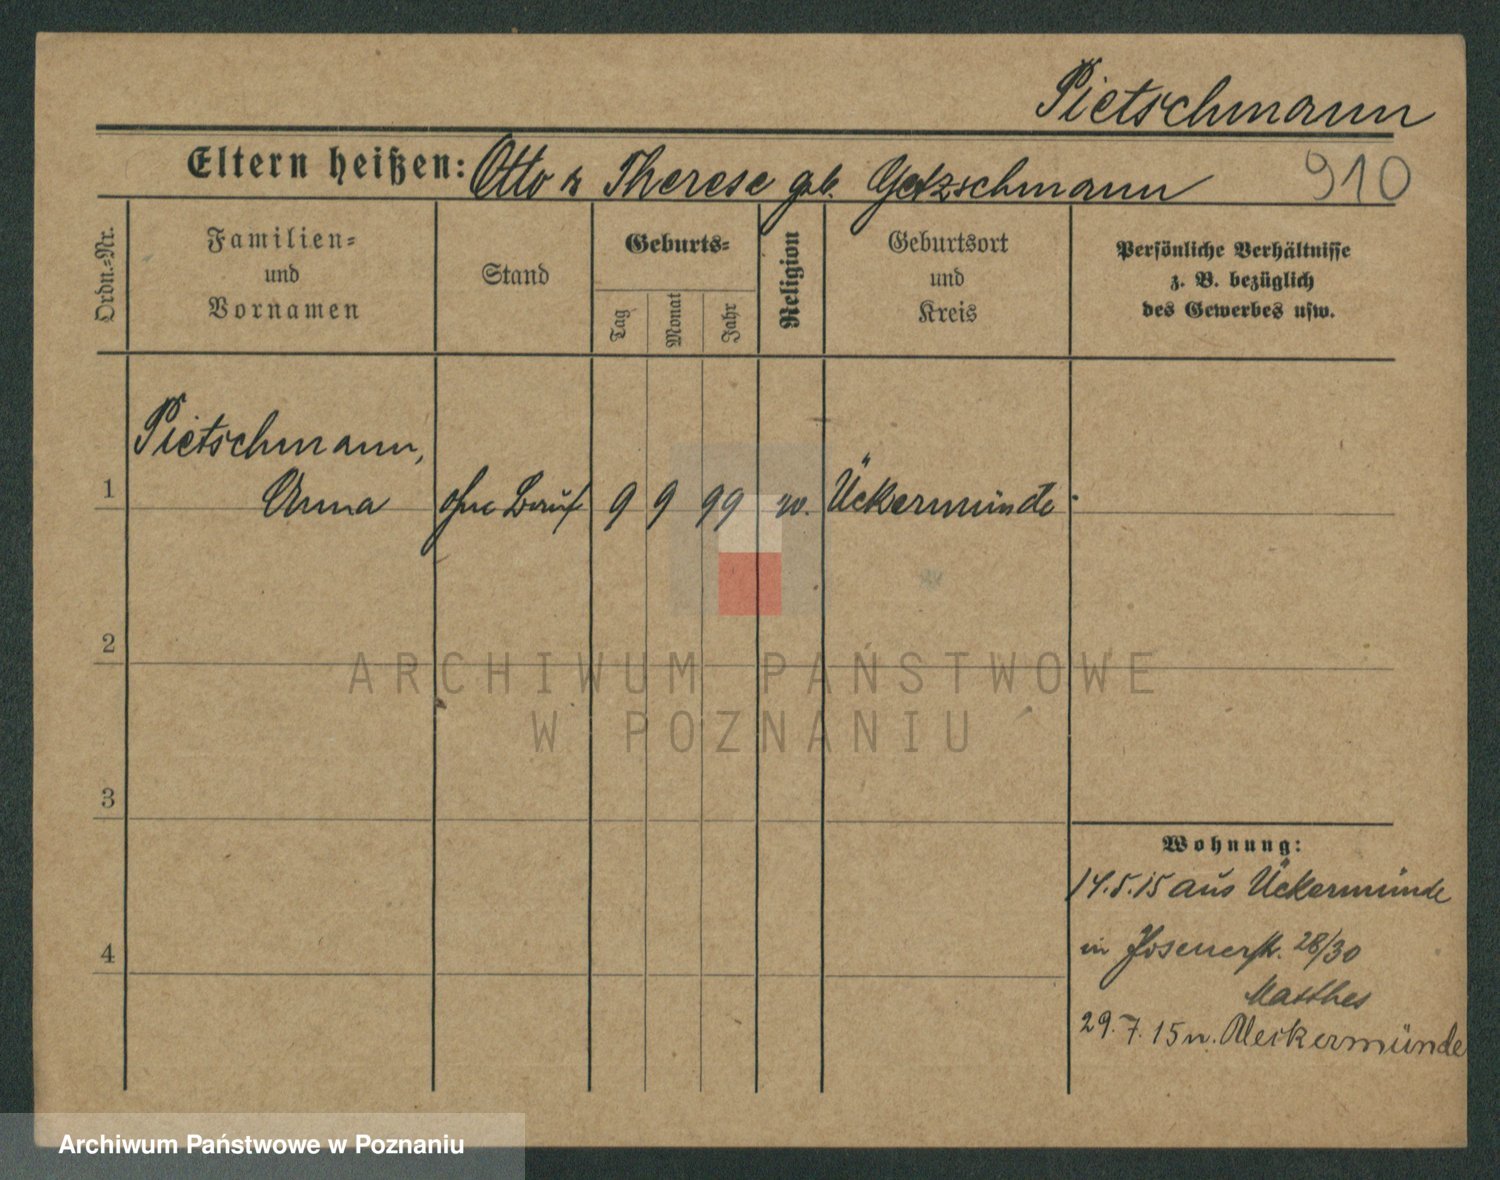 Pietschmann
Eltern heißen: Otto u Therese geb. Getzschmann 910
Ordn.-Nr.
Familien-
und
Vornamen
Stand
Geburts-
Tag
Monat
Jahr
Religion
Geburtsort
und
Kreis
Persönliche Verhältnisse
z. B. bezüglich
des Gewerbes usw.
Pietschmann,
1 Anna ohne Beruf 9 9 99 Ückermünde
2
3
4
Wohnung:
14.5.15 aus Ückermünde
in 28/30
Matthes
29.7.15 n. Ueckermünde
ARCHIWUM PAŃSTWOWE
W POZNANIU
Archiwum Państwowe w Poznaniu